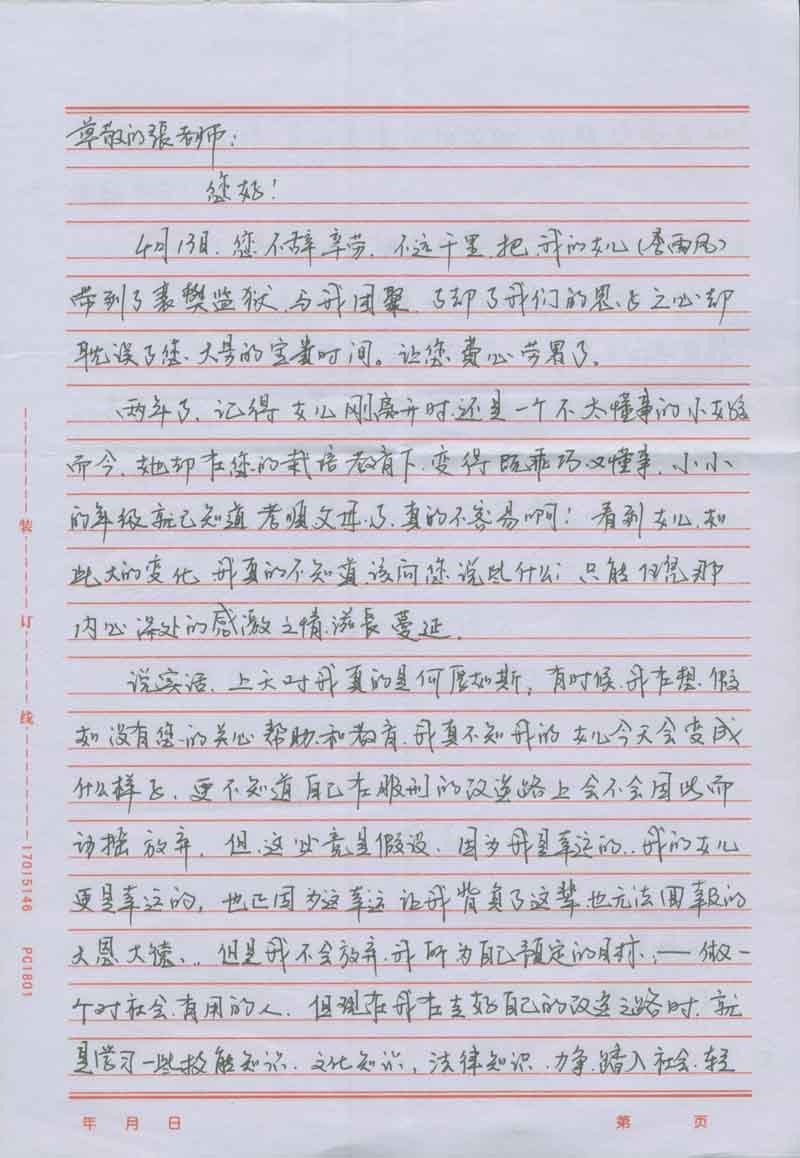 尊敬的張老师：
您好！
4月13日，您不辞辛劳，不远千里，把我的女儿（雨风）
带到了襄樊监狱，与我团聚，了却了我们的思女之心却
耽误了您大量的宝贵时间。让您费心劳累了。
两年了，记得女儿刚离开时还是一个不太懂事的小女孩
而今，她却在您的栽培教育下，变得既乖巧又懂事，小小
的年级就已知道孝順父母了，真的不容易啊！看到女儿如
此大的变化，我真的不知道该向您说些什么，只能任凭那
内心深处的感激之情滋長蔓延。
说实话，上天对我真的是何厚如斯，有时候我在想，假
如没有您的关心帮助和教育，我真不知我的女儿今天会变成
什么样子，更不知道自己在服刑的改造路上会不会因此而
放弃，但这毕竟是假设，因为我是幸运的，我的女儿
更是幸运的，也正因为这幸运让我背负了这辈也无法回報的
大恩大德，但是我不会放弃我所为自己预定的目标，——做一
个对社会有用的人，但现在我在走好自己的改造之路时，就
是学习一些技能知识，文化知识，法律知识，力争踏入社会，轻
装订线 17015146 PC1801
年 月 日 第 页